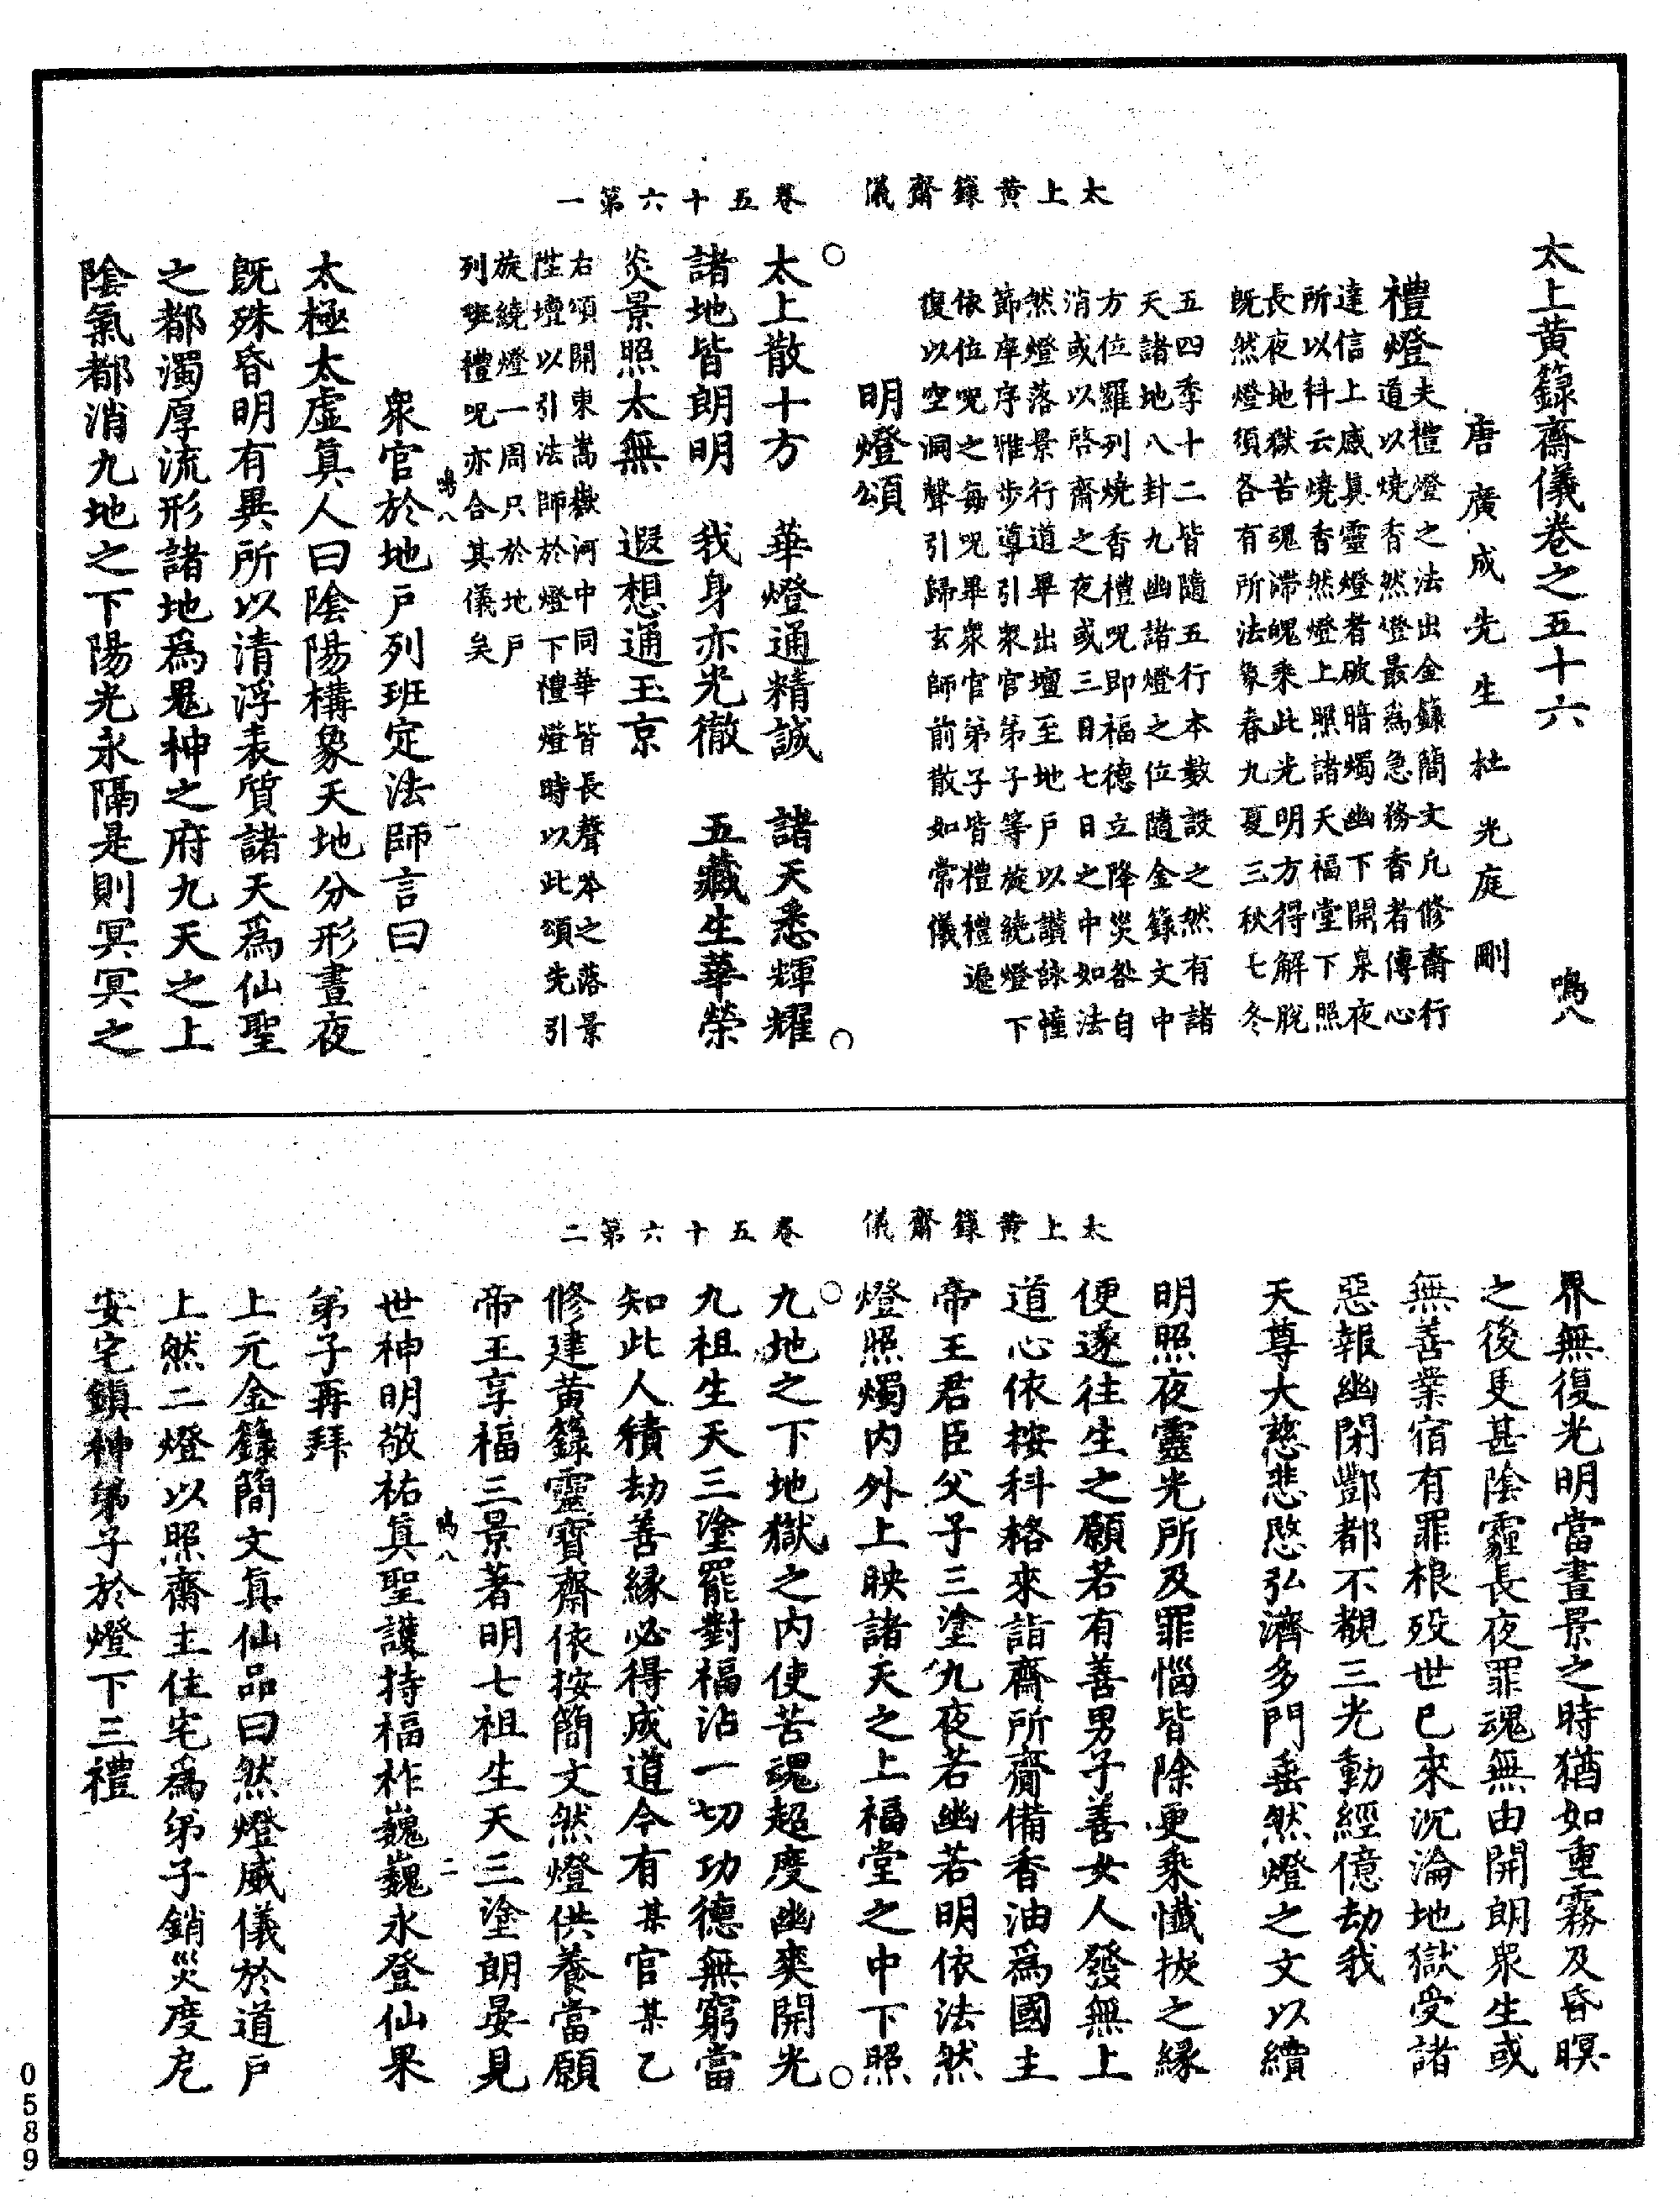 太上黃籙齋儀　卷五十六第一
太上黃籙齋儀卷之五十六　鳴八
唐廣成先生杜光庭刪
禮燈夫禮燈之法出金籙簡文凡修齋行
道以燒香然燈最爲急務香者傳心
達信上感眞靈燈者破暗燭幽下開泉夜
所以科云燒香然燈上照諸天福堂下照
長夜地獄苦魂滯魄乘此光明方得解脫
旣然燈須各有所法象春九夏三秋七冬
五四季十二皆隨五行本數設之然有諸
天諸地八卦九幽諸燈之位隨金籙文中
方位羅列燒香禮呪即福德立降災咎自
消或以啓齋之夜或三日七日之中如法
然燈落景行道畢出壇至地戶以讚詠幢
節庠序雅步導引衆官弟子等旋繞燈下
依位呪之每呪畢衆官弟子皆禮禮遍
復以空洞聲引歸玄師前散如常儀
明燈頌
太上散十方　華燈通精誠　諸天悉輝耀
諸地皆朗明　我身亦光徹　五藏生華榮
炎景照太無　遐想通玉京
右頌開東嵩嶽河中同華皆長聲吟之落景
陞壇以引法師於燈下禮燈時以此頌先引
旋繞燈一周只於地戶
列班禮呪亦合其儀矣
衆官於地戶列班定法師言曰
鳴八　一
太極太虛眞人曰陰陽構象天地分形晝夜
旣殊昏明有異所以清浮表質諸天爲仙聖
之都濁厚流形諸地爲鬼神之府九天之上
陰氣都消九地之下陽光永隔是則冥冥之
太上黃籙齋儀　卷五十六第二
界無復光明當晝景之時猶如重霧及昏暝
之後更甚陰霾長夜罪魂無由開朗衆生或
無善業宿有罪根歿世已來沉淪地獄受諸
惡報幽閉酆都不覩三光動經億劫我
天尊大慈悲愍弘濟多門垂然燈之文以續
明照夜靈光所及罪惱皆除更乘懺拔之緣
便遂往生之願若有善男子善女人發無上
道心依按科格來詣齋所齎備香油爲國主
帝王君臣父子三塗九夜若幽若明依法然
燈照燭內外上映諸天之上福堂之中下照
九地之下地獄之內使苦魂超度幽爽開光
九祖生天三塗罷對福沾一切功德無窮當
知此人積劫善緣必得成道今有某官某乙
修建黃籙靈寶齋依按簡文然燈供養當願
帝王享福三景著明七祖生天三塗朗晏見
世神明敬祐眞聖護持福祚巍巍永登仙果
鳴八　二
弟子再拜
上元金籙簡文眞仙品曰然燈威儀於道戶
上然二燈以照齋主住宅爲弟子銷災度厄
安宅鎭神弟子於燈下三禮
0589